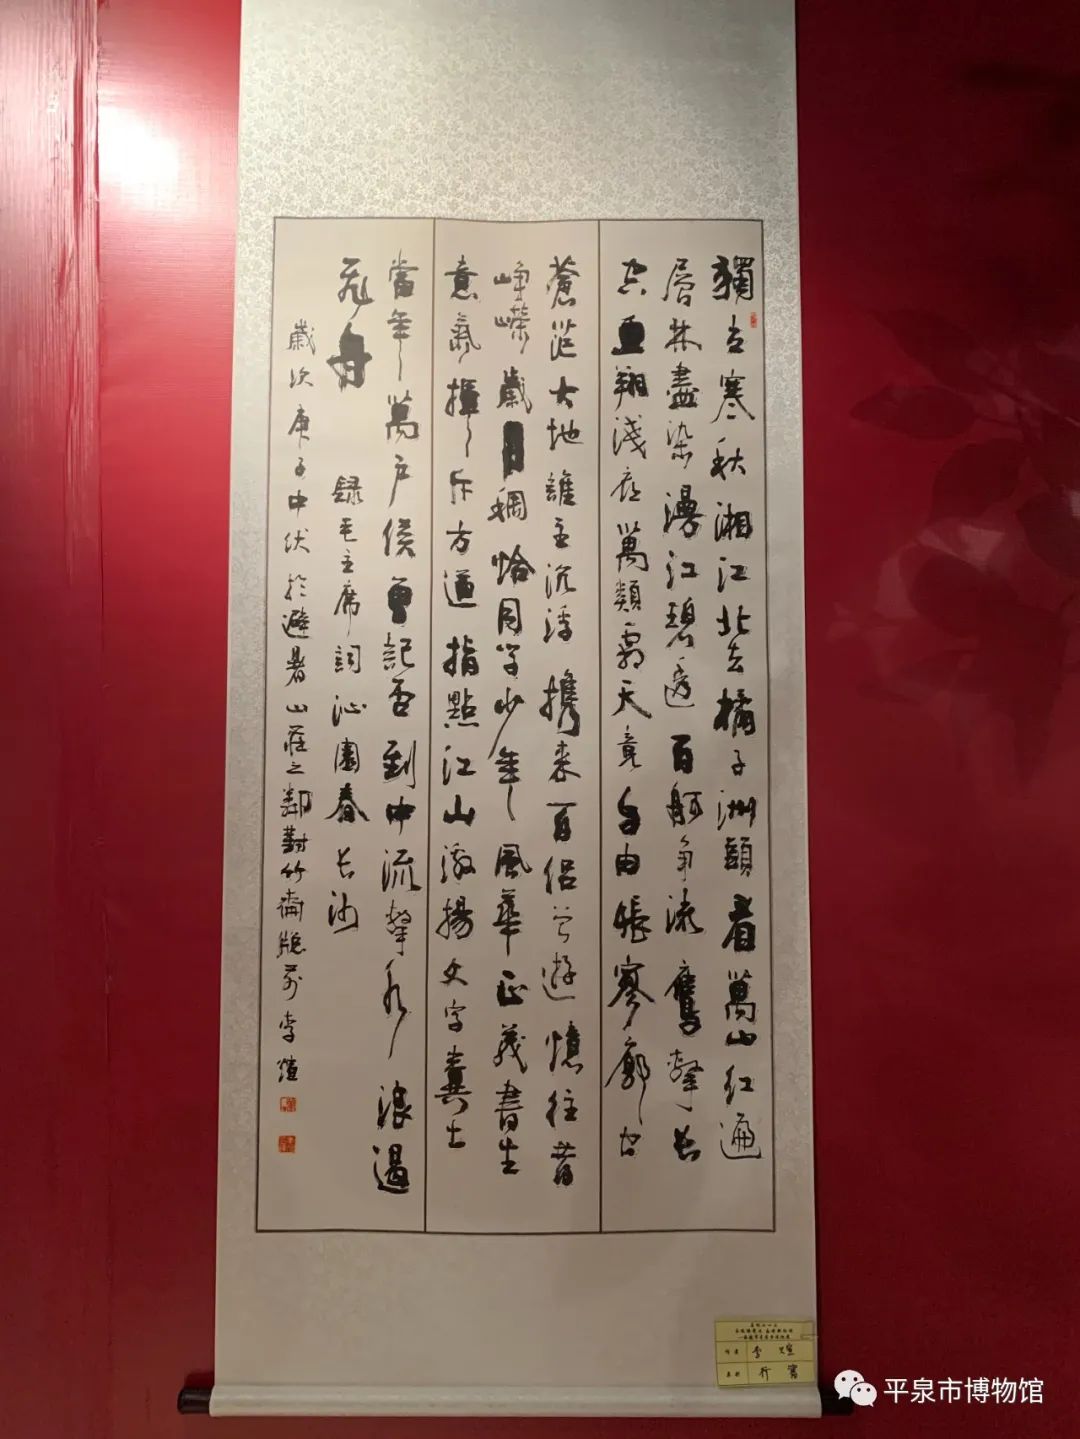 獨立寒秋湘江北去橘子洲頭看萬山红遍
層林盡染漫江碧透百舸争流鷹擊长
空魚翔淺底萬類霜天竟自由悵寥廓问
蒼茫大地誰主沉浮携来百侣曾遊憶往昔
崢嶸歲月稠恰同学少年風華正茂書生
意氣揮斥方遒指點江山激揚文字糞土
當年萬户侯曾記否到中流擊水浪遏
飛舟 録毛主席詞沁園春长沙
歲次庚子中伏於避暑山莊之鄰對竹齋牕前李煊
作者 李煊
行書
平泉市博物馆